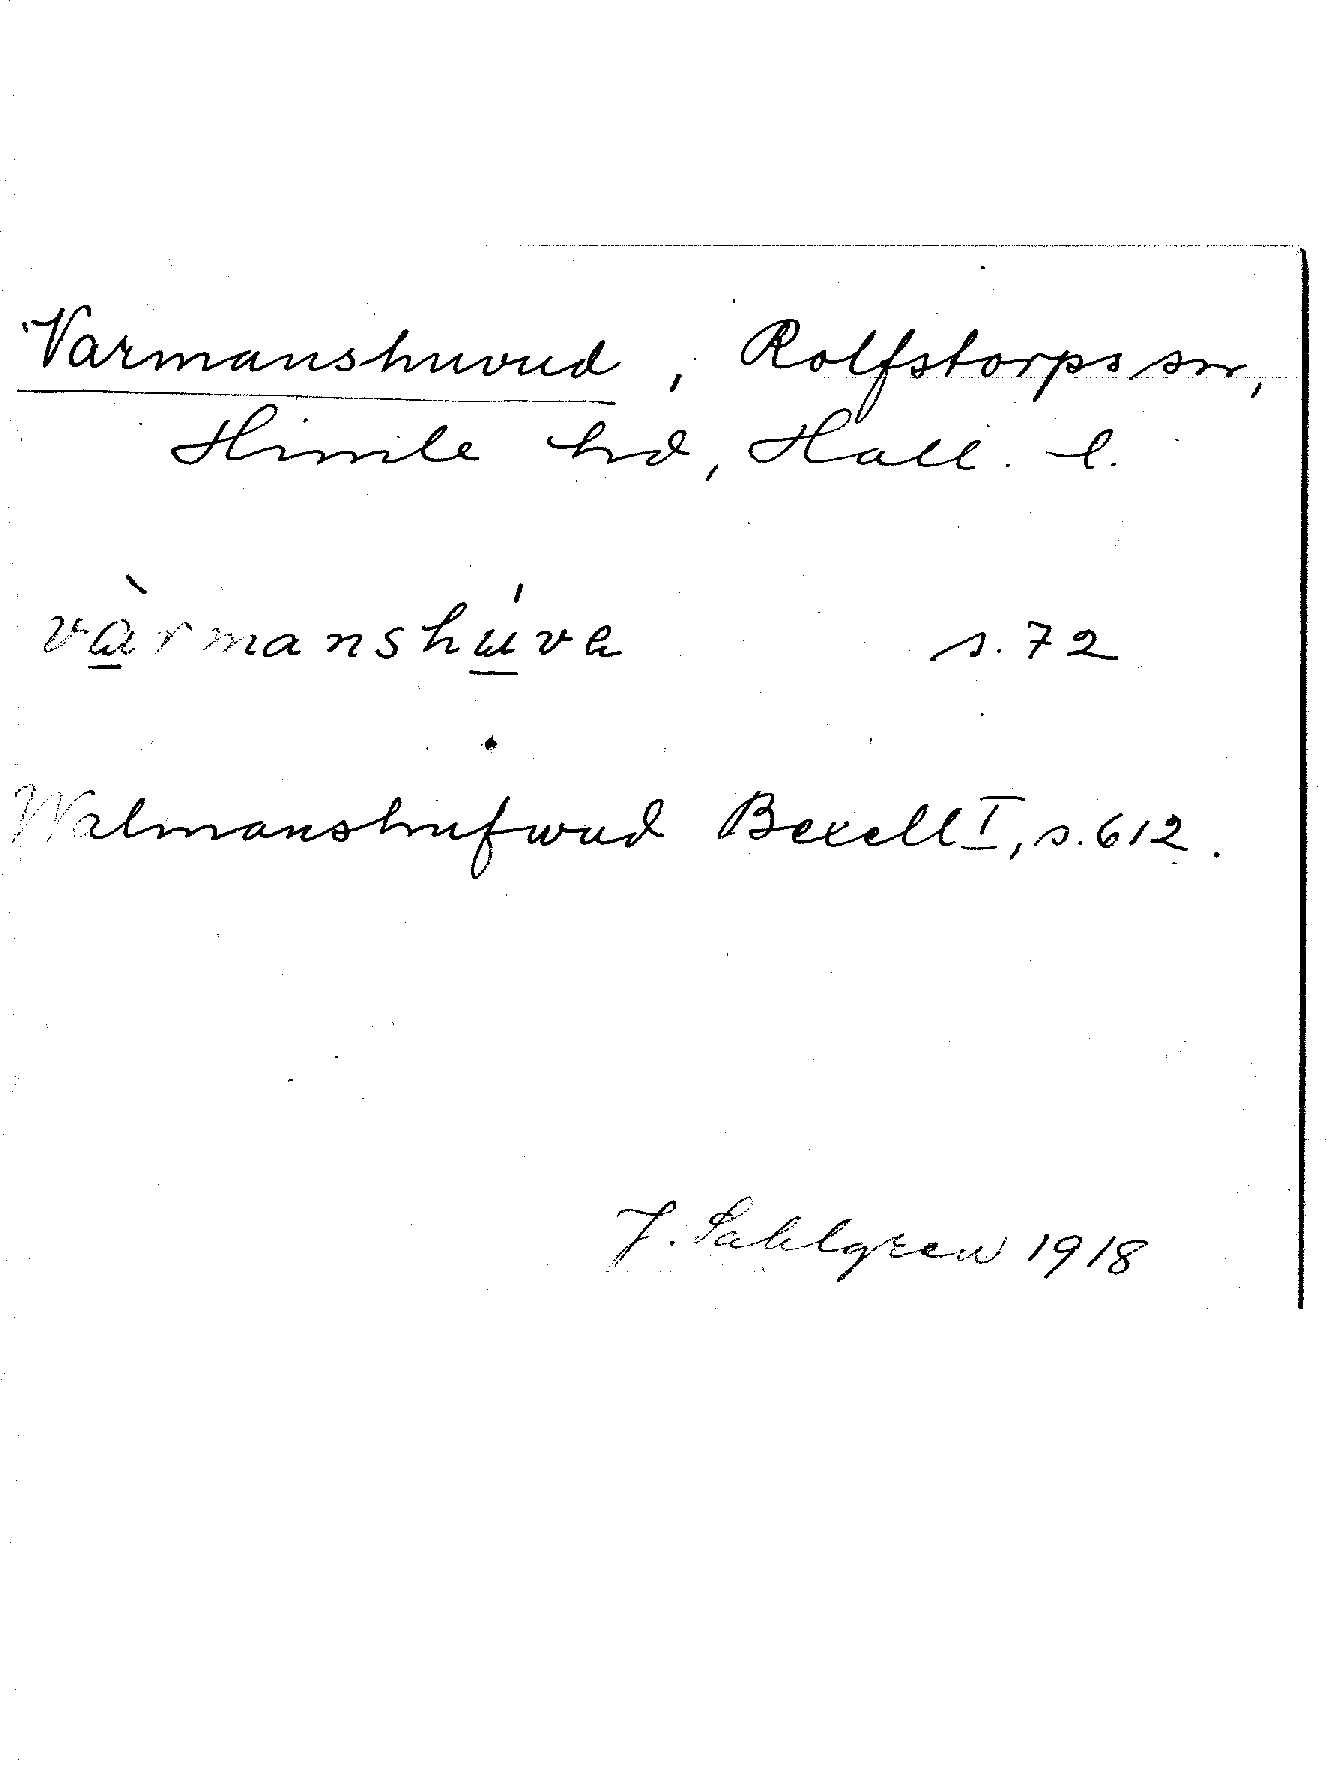 Varmanshuvud, Rolfstorps sn,
Himle hd, Hall. l.
vàrmanshúva s. 72
Walmanshufwud Bexell I, s. 612.
J. Sahlgren 1918